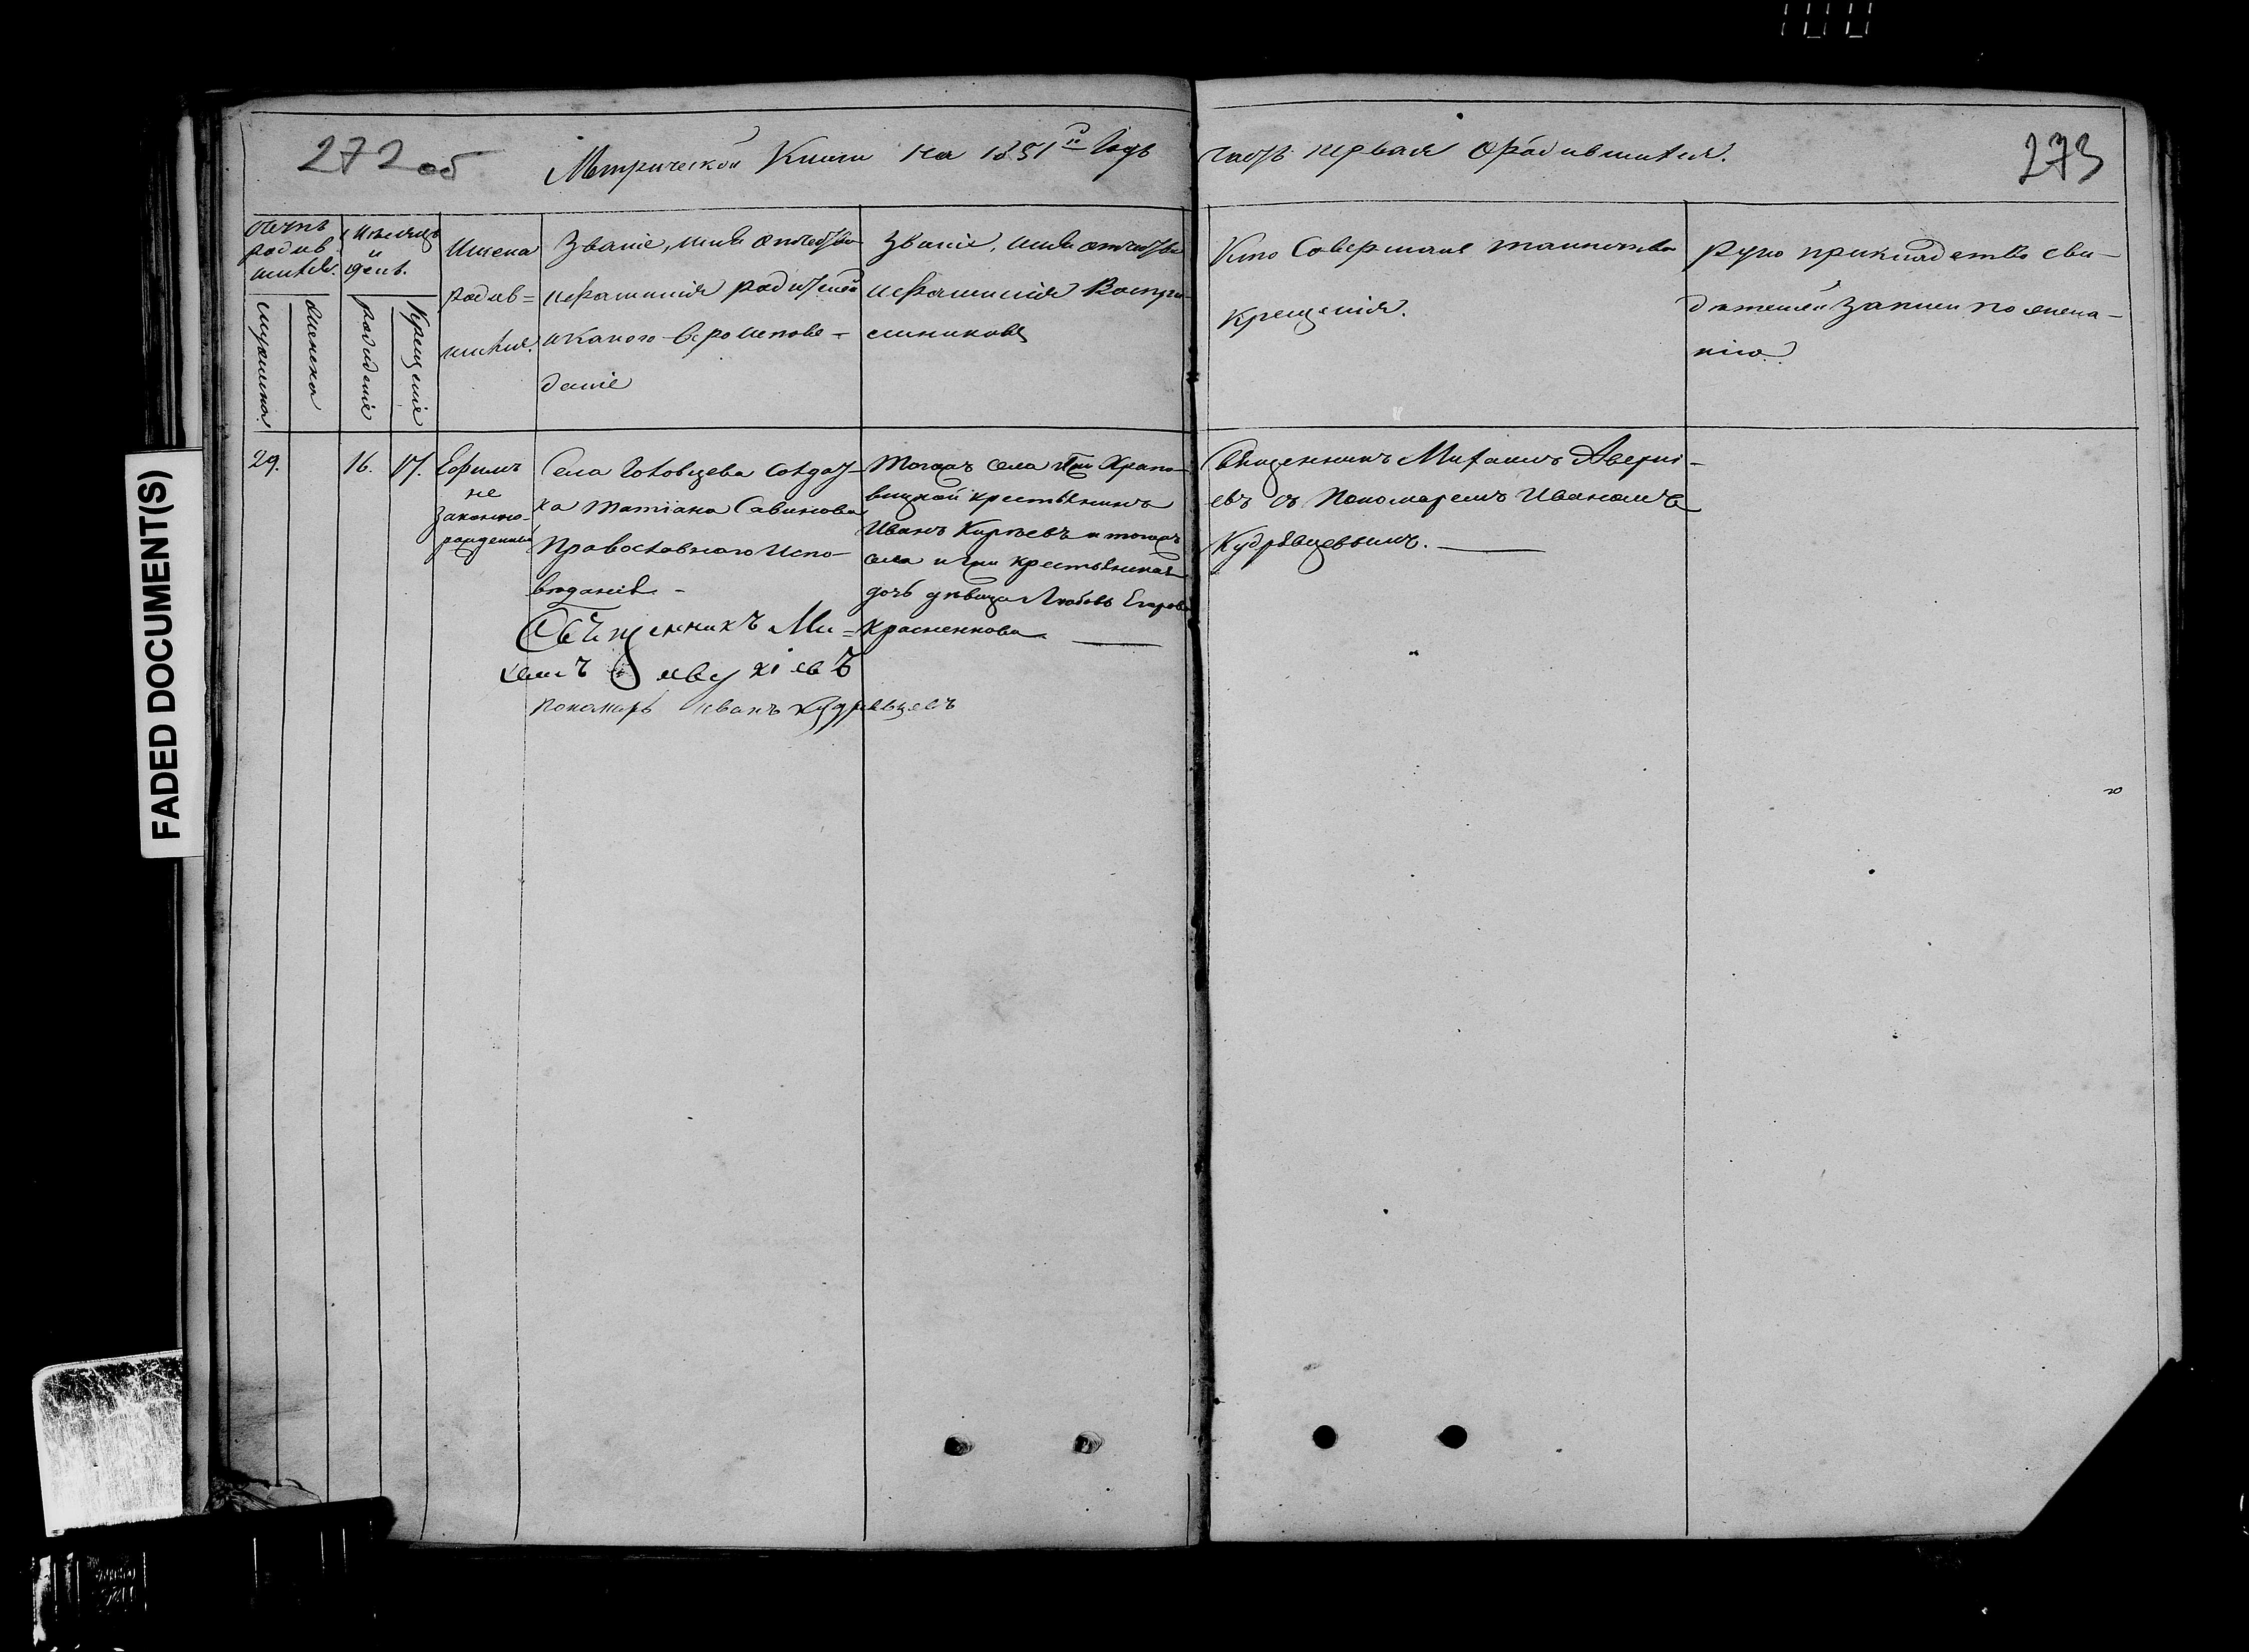 272 об
Метрической Книги на 1851й Годъ
часть первая о родившихся.
273
Счетъ родив шихся.
мужеска
женска
Месяцъ и день.
рожденiя
Крещенiя
Имена
родив=
шихся.
Званiе, имя отчество
и фамилiя родителей
и какого вероиспове=
данiя
Званiе, имя отчество
и фамилiя Воспри-
емниковъ
Кто Совершалъ таинство
крещенiя.
Рукоприкладство сви-
детелей записи по жела-
нiю.
29.
16.
17.
Ефимъ
не
законно-
рожденный
Села Головцева солдат-
ка Татiана Савинова
Православнаго Испо-
вѣданiя -
Тогожъ села Гжи Храпо-
вицкой крестьянинъ
Иванъ Кирѣевъ и тогожъ
села и Гжи крестьянская
дочь дѣвица Любовь Егорова
Красненкова
Священникъ Михаилъ Аверкi-
евъ съ Пономаремъ Иваномъ
Кудрявцевымъ.
Священникъ Ми=
хаилъ Аверкiевъ
Пономарь Иванъ Кудрявцевъ
FADED DOCUMENT(S)